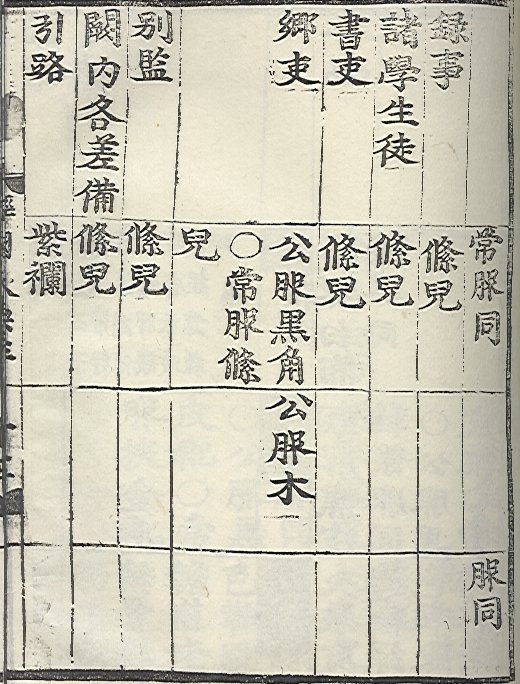 常服同 服同
録事 絛兒
諸學生徒 絛兒
書吏 絛兒
鄕吏 公服黑角 公服木
○常服絛
兒
别監 絛兒
闕内各差備 絛兒
引路 紫襴